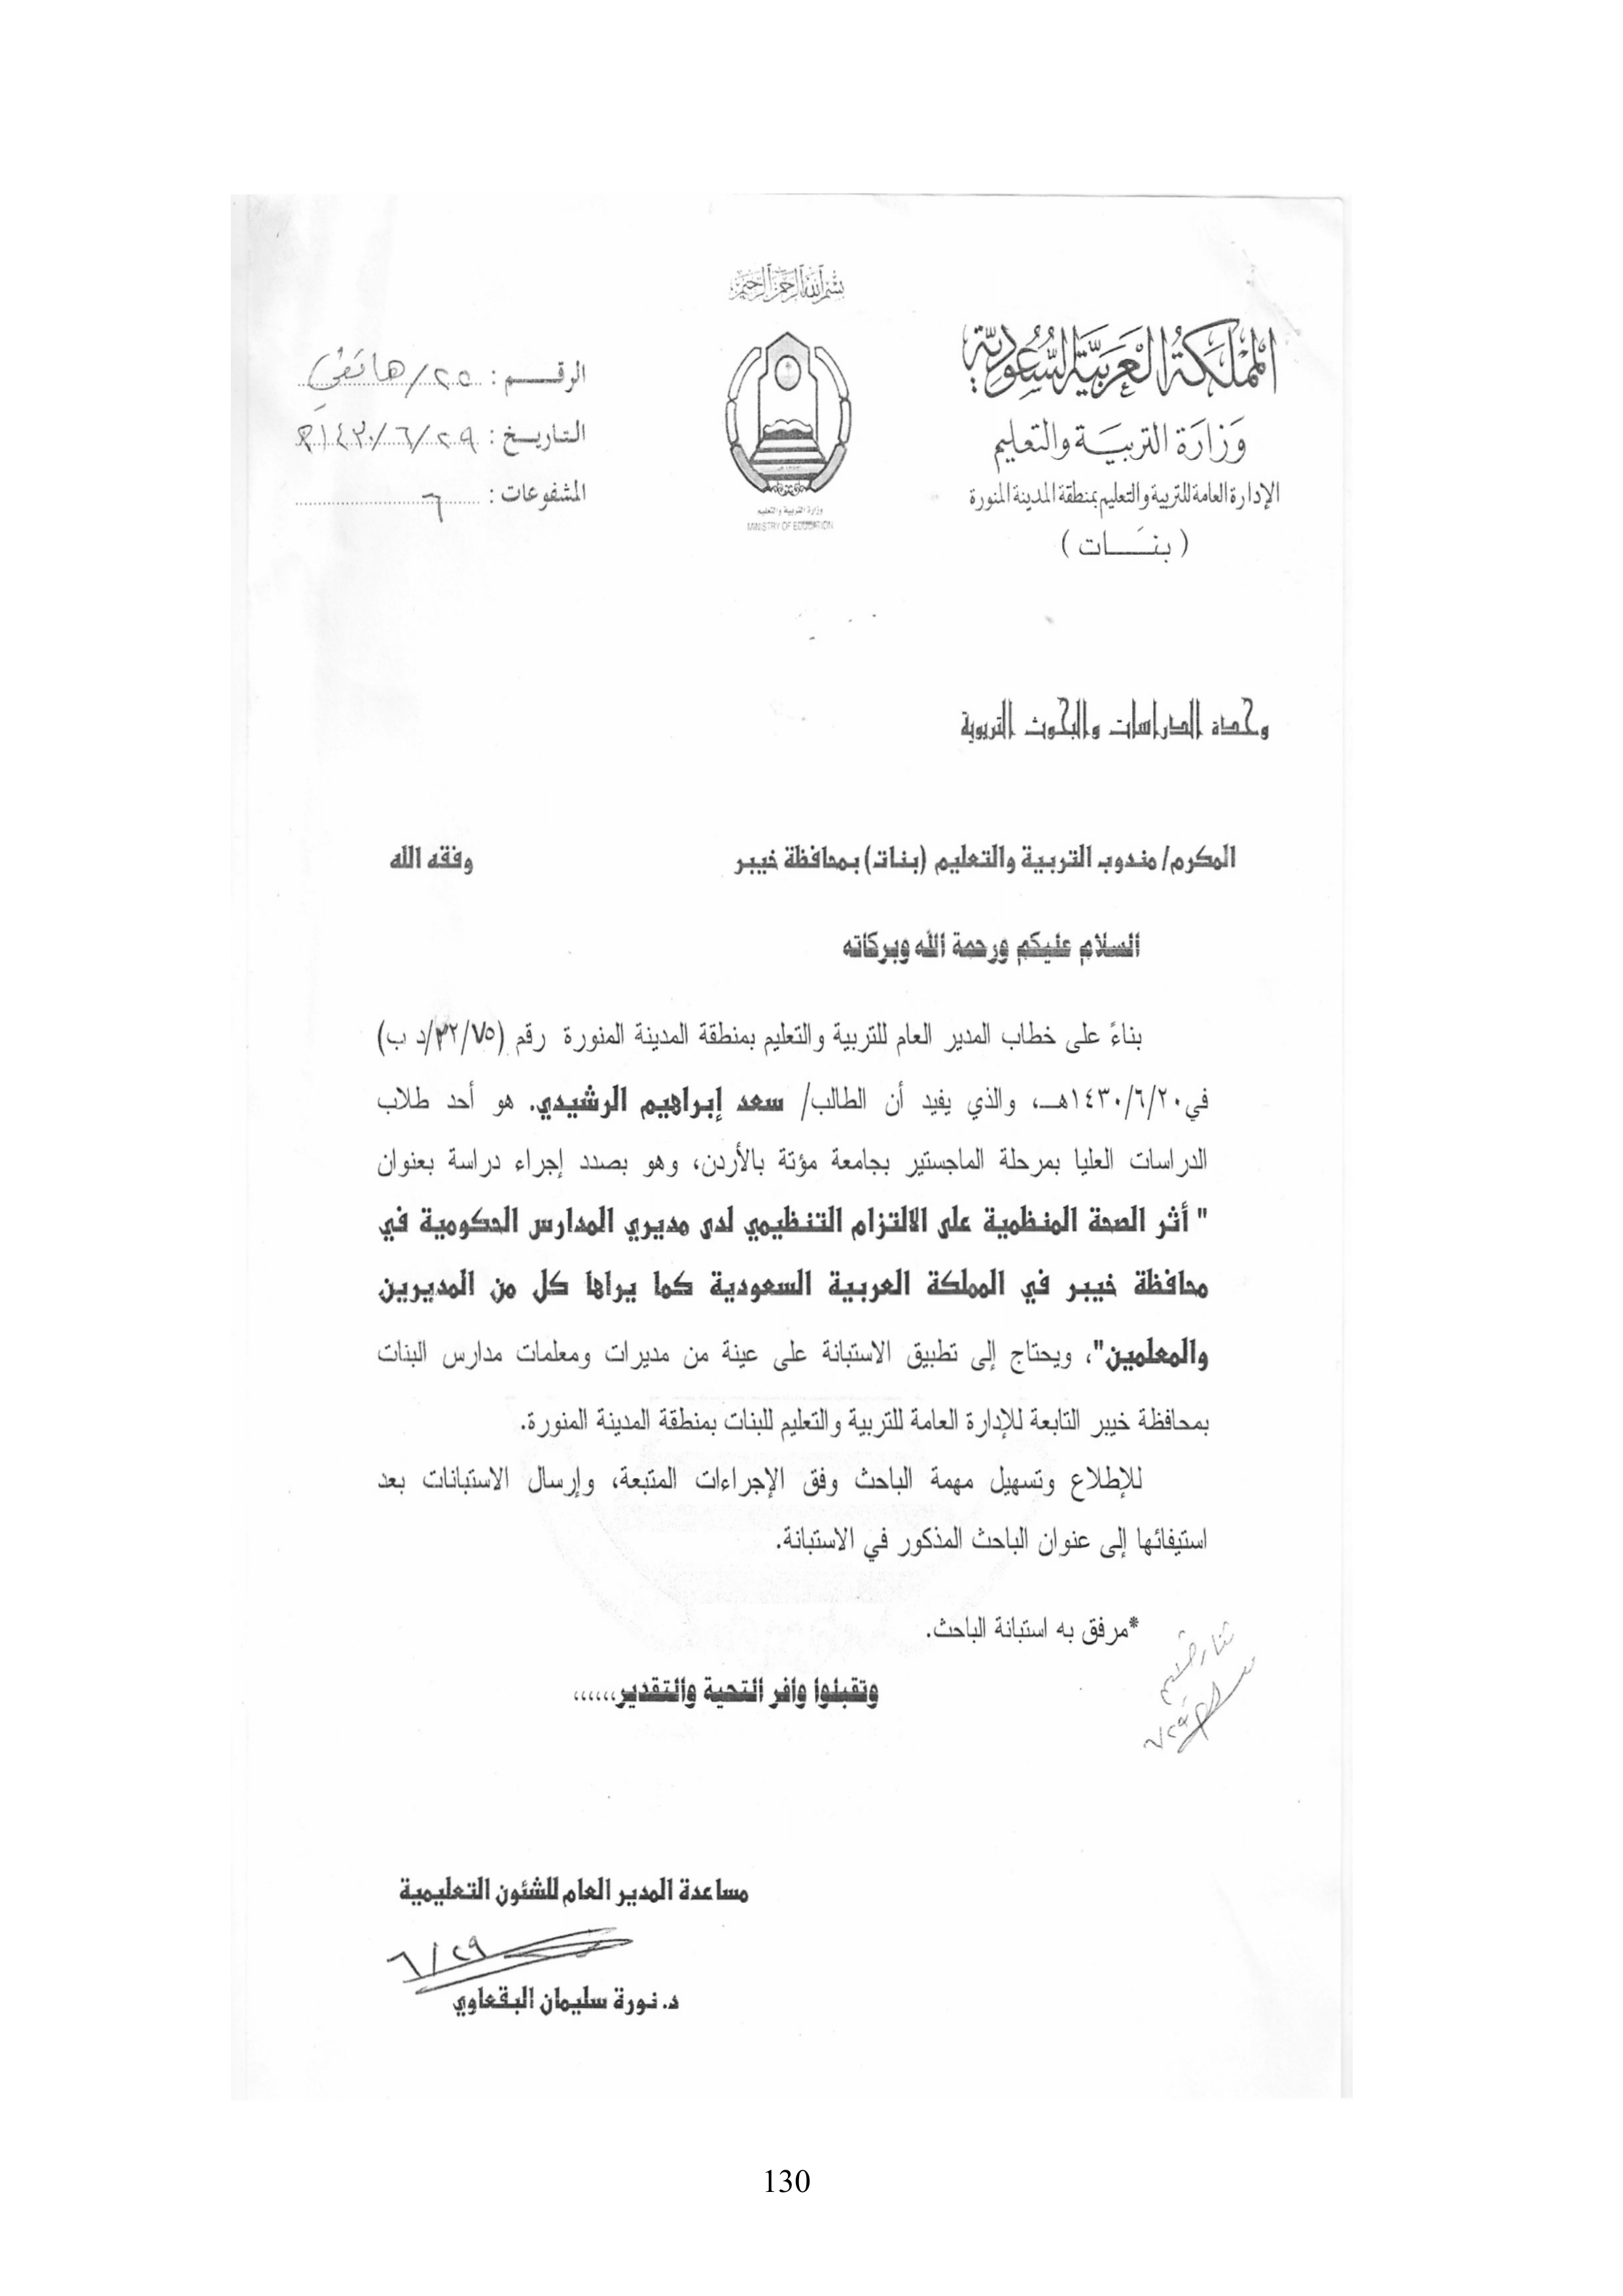 بسم الله الرحمن الرحيم
المملكة العربية السعودية
وزارة التربية والتعليم
الإدارة العامة للتربية والتعليم بمنطقة المدينة المنورة
( بنات )
وزارة التربية والتعليم
MINISTRY OF EDUCATION
الرقم : ٢٥/
التاريخ : ١٤٣٠/٦/٢٩هـ
المشفوعات : ٦
وحدة الدراسات والبحوث التربوية
المكرم/ مندوب التربية والتعليم (بنات) بمحافظة خيبر وفقه الله
السلام عليكم ورحمة الله وبركاته
بناءً على خطاب المدير العام للتربية والتعليم بمنطقة المدينة المنورة رقم (٣٢/٧٥/د ب)
في١٤٣٠/٦/٢٠هـ، والذي يفيد أن الطالب/ سعد إبراهيم الرشيدي. هو أحد طلاب
الدراسات العليا بمرحلة الماجستير بجامعة مؤتة بالأردن، وهو بصدد إجراء دراسة بعنوان
" أثر الصحة المنظمية على الالتزام التنظيمي لدى مديري المدارس الحكومية في
محافظة خيبر في المملكة العربية السعودية كما يراها كل من المديرين
والمعلمين"، ويحتاج إلى تطبيق الاستبانة على عينة من مديرات ومعلمات مدارس البنات
بمحافظة خيبر التابعة للإدارة العامة للتربية والتعليم للبنات بمنطقة المدينة المنورة.
للإطلاع وتسهيل مهمة الباحث وفق الإجراءات المتبعة، وإرسال الاستبانات بعد
استيفائها إلى عنوان الباحث المذكور في الاستبانة.
*مرفق به استبانة الباحث.
وتقبلوا وافر التحية والتقدير،،،،،،
مساعدة المدير العام للشئون التعليمية
٦/٢٩
د. نورة سليمان البقعاوي
130